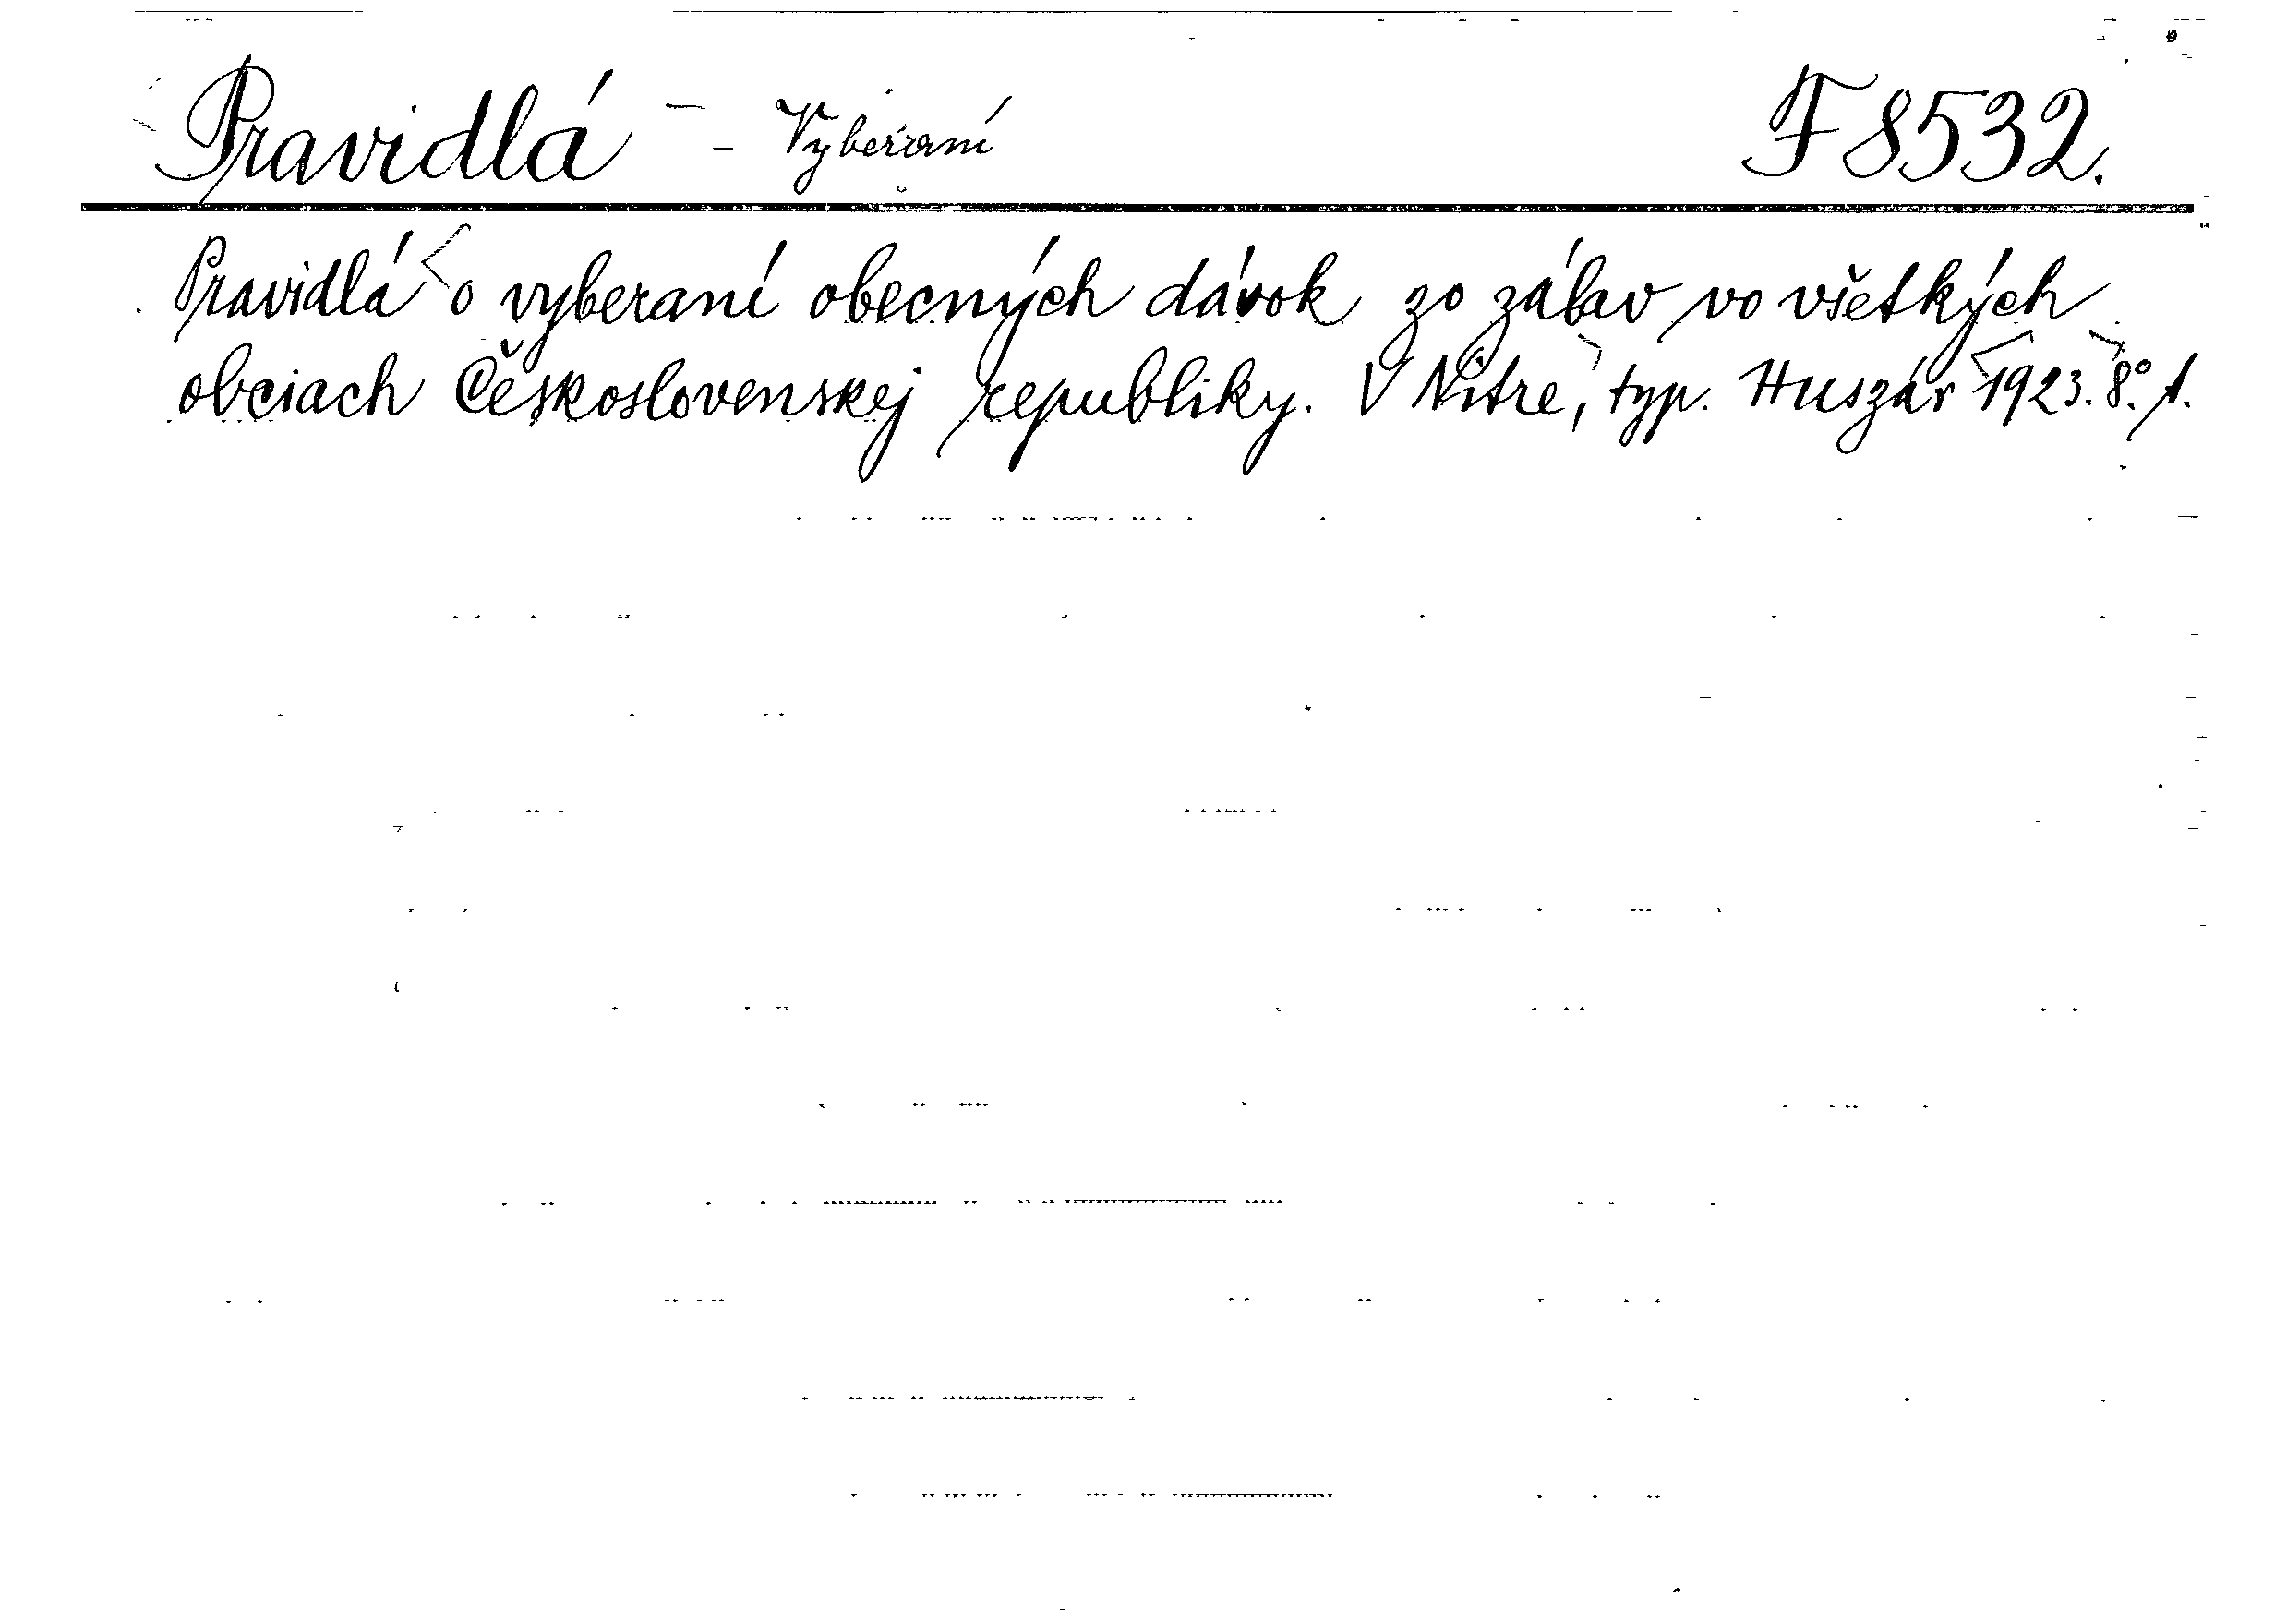 Pravidlá - Vyberaní F 8532.
Pravidlá o vyberaní obecných dávok zo zábav vo všetkých
obciach Československej republiky. V Nitre, typ. Huszár 1923. 8°. f.